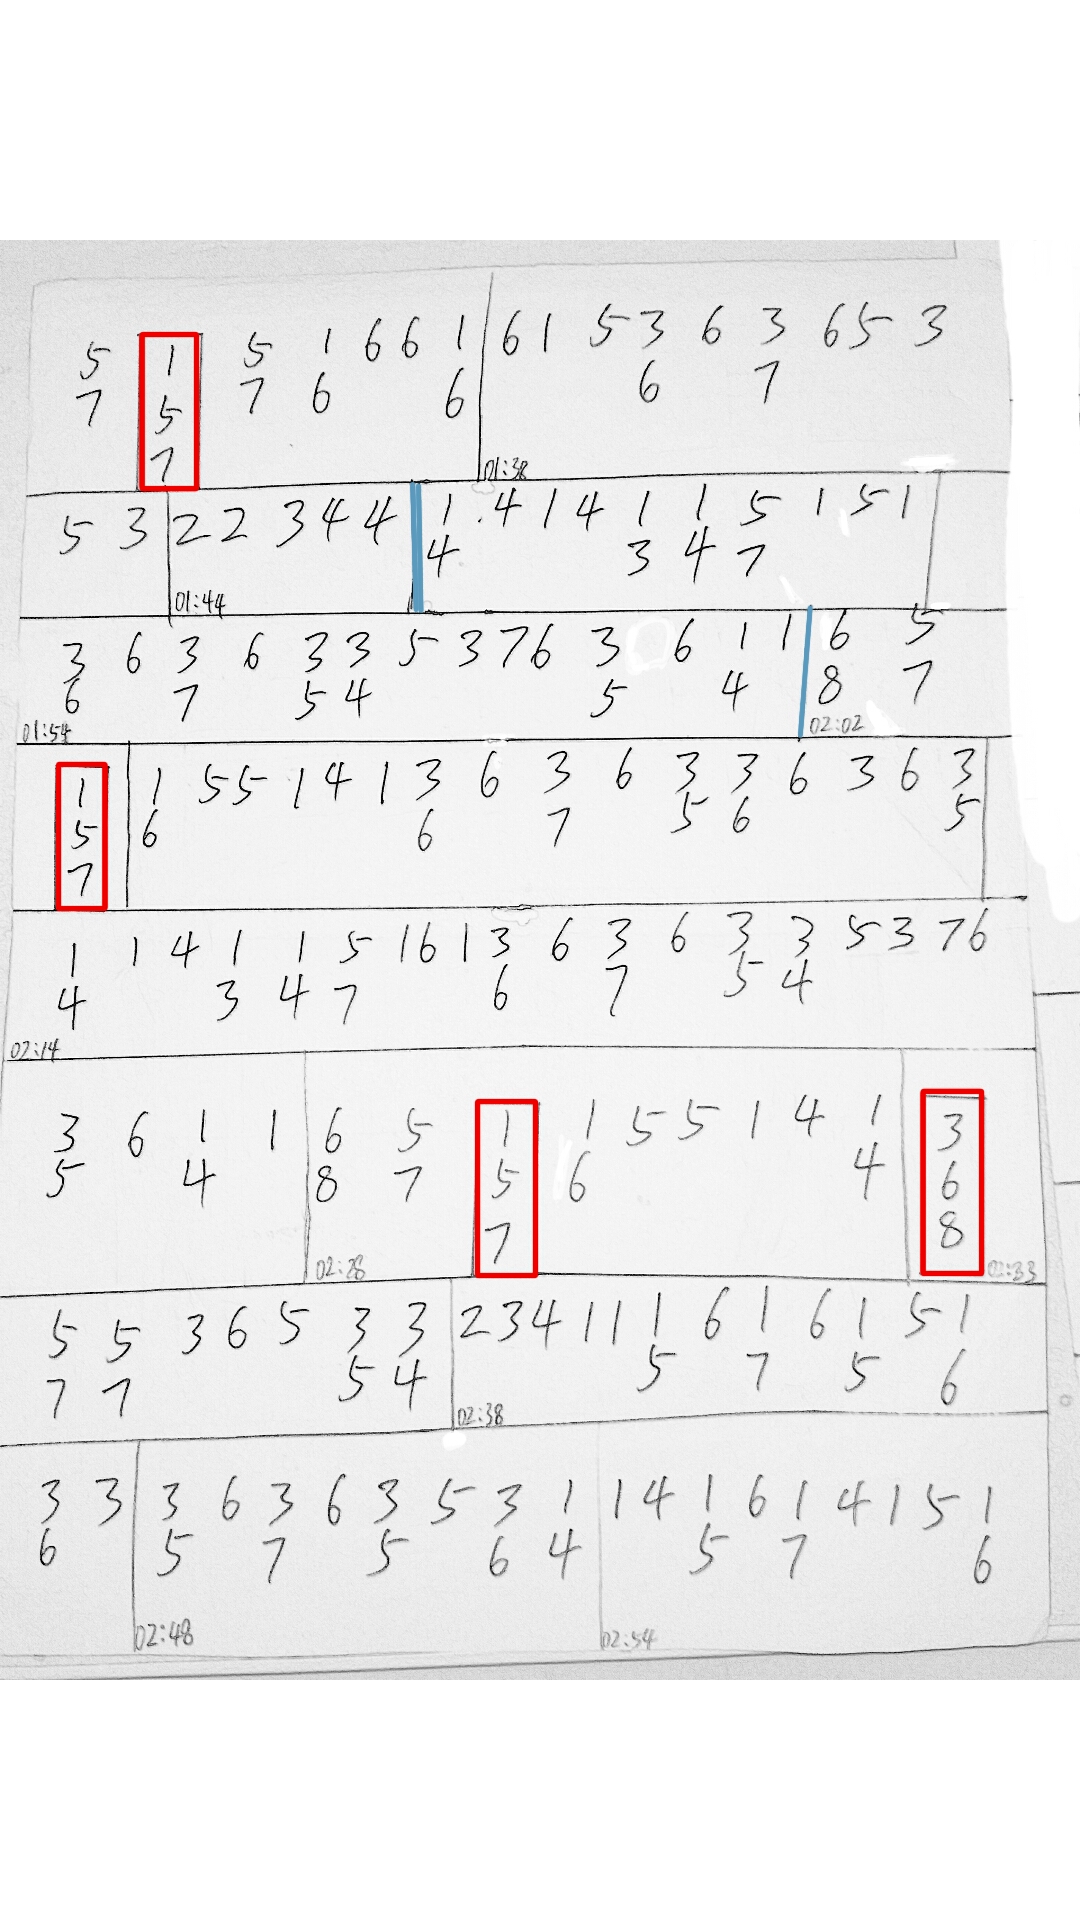 5 1 5 1 6 6 1 6 1 5 3 6 3 6 5 3
7 5 7 6 6 6 7
7
01:38
5 3 2 2 3 4 4 1 .4 1 4 1 1 5 1 5 1
4 3 4 7
01:44
3 6 3 6 3 3 5 3 7 6 3 6 1 1 6 5
6 7 5 4 5 4 8 7
01:54 02:02
1 1 5 5 1 4 1 3 6 3 6 3 3 6 3 6 3
5 6 6 7 5 6 5
7
1 1 4 1 1 5 1 6 1 3 6 3 6 3 3 5 3 7 6
4 3 4 7 6 7 5 4
02:14
3 6 1 1 6 5 1 1 5 5 1 4 1 3
5 4 8 7 5 6 4 6
7 8
02:28 02:33
5 5 3 6 5 3 3 2 3 4 1 1 1 6 1 6 1 5 1
7 7 5 4 5 7 5 6
02:38
3 3 3 6 3 6 3 5 3 1 1 4 1 6 1 4 1 5 1
6 5 7 5 6 4 5 7 6
02:48 02:54